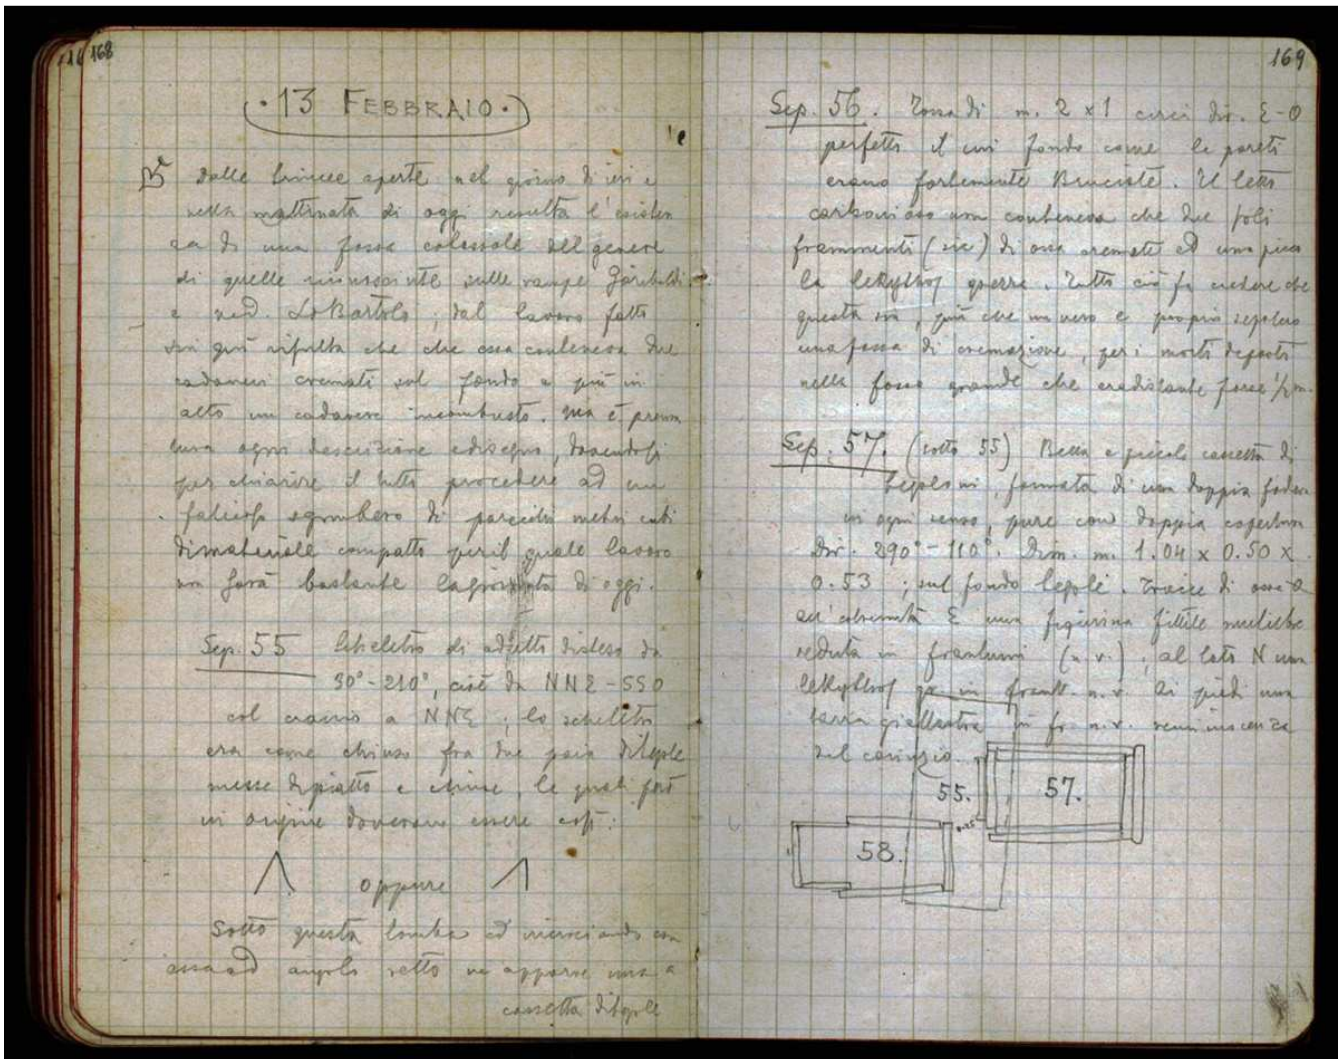 168
· 13 FEBBRAIO ·
Dalle trincee aperte nel giorno di ieri e
nella mattinata di oggi risulta l'esisten
za di una fossa colossale del genere
di quelle riconosciute sulle rampe Garibaldi
e pred. Lo Bartolo; dal lavoro fatto
sin qui risulta che che essa conteneva due
cadaveri cremati sul fondo e più in
alto un cadavere incombusto. Ma è prema
tura ogni descrizione e disegno, dovendosi
per chiarire il tutto procedere ad un
faticoso sgombero di parecchi metri cubi
di materiale compatto per il quale lavoro
non sarà bastante la giornata di oggi.
Sep. 55 Scheletro di adulto disteso da
30°-210°, cioè da NNE-SSO
col cranio a NNE; lo scheletro
era come chiuso fra due paia di tegole
messe di piatto e chiuse, le quali forse
in origine dovevano essere così:
oppure
Sotto questa tomba ed incrociando con
essa ad angolo retto ne apparve una
cassetta di tegole
169
Sep. 56. Fossa di m. 2 x 1 circa dir. E-O
perfetta il cui fondo come le pareti
erano fortemente bruciate. Il letto
carbonioso non conteneva che due soli
frammenti (sic) di ossa cremate ed una picco
la lekythos grezza. Tutto ciò fa credere che
questa sia, più che un vero e proprio sepolcro
una fossa di cremazione, per i morti deposti
nella fossa grande che era distante forse 1/2 m.
Sep. 57. (sotto 55) Bella e piccola cassetta di
tegoloni, formata di una doppia fodera
in ogni senso, pure con doppia copertura
Dir. 290°-110°. Dim. m. 1.04 x 0.50 x
0.53; sul fondo tegole. Tracce di ossa
all'estremità E una figurina fittile muliebre
seduta in frantumi (n.v.), al lato N una
lekythos in frant. n.v. Ai piedi una
giallastra in fr. n.v. reminiscenza
del corinzio.
55.
57.
58.